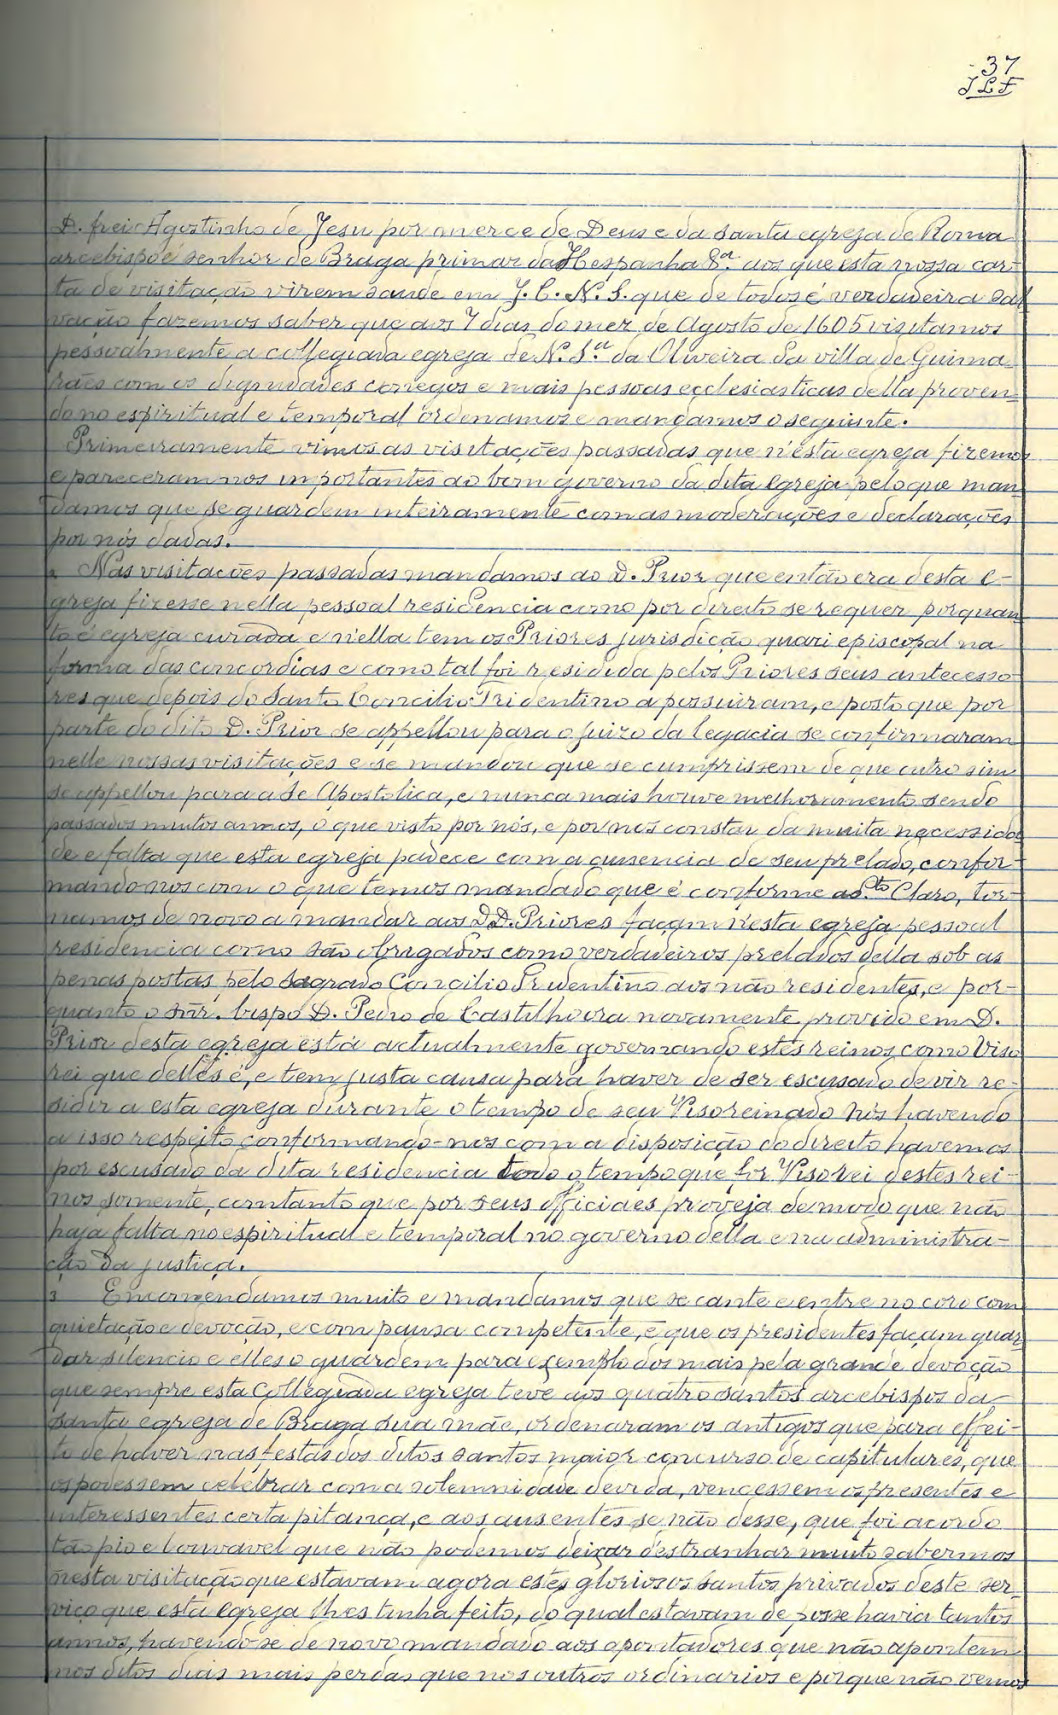 37
JLF
D. frei Agostinho de Jesu por merce de Deus e da santa egreja de Roma
arcebispo e senhor de Braga primaz da Hespanha &ª. aos que esta nossa car-
ta de visitação virem saude em J. C. N. S. que de todos é verdadeira sal
vação fazemos saber que aos 7 dias do mez de Agosto de 1605 visitamos
pessoalmente a collegiada egreja de N. S.ª da Oliveira da villa de Guima-
rães com os degnidades conegos e mais pessoas ecclesiasticas della proven-
do no espiritual e temporal ordenamos e mandamos o seguinte.
Primeiramente vimos as visitações passadas que n'esta egreja fizemos
e pareceram nos importantes ao bom governo da dita egreja pelo que man
damos que se guardem inteiramente com as moderações e declarações
por nós dadas.
2 Nas visitações passadas mandamos ao D. Prior que então era desta e-
greja fizesse nella pessoal residencia como por direito se requer porquan
to é egreja curada e n'ella tem os Priores jurisdição quasi episcopal na
forma das concordias e como tal foi residida pelos Priores seus antecesso-
res que depois do Santo Concilio Tridentino a possuiram, e posto que por
parte do dito D. Prior se appellou para o juizo da legacia se confirmaram
nelle nossas visitações e se mandou que se cumprissem de que outro sim
se appellou para a Sé Apostolica, e nunca mais houve melhoramento sendo
passados muitos annos, o que visto por nós, e por nos constar da muita necessida
de e falta que esta egreja padece com a ausencia de seu prelado, confor-
mando-nos com o que temos mandado que é conforme a dto Claro, tor-
namos de novo a mandar aos D.D. Priores façam n'esta egreja pessoal
residencia como são obrigados como verdadeiros prelados della sob as
penas postas pelo sagrado Concilio Tridentino aos não residentes, e por-
quanto o snr. bispo D. Pedro de Castilho ora novamente provido em D.
Prior desta egreja está actualmente governando estes reinos como Viso
rei que delles é, e tem justa causa para haver de ser escusado de vir re-
sidir a esta egreja durante o tempo de seu Visoreinado nós havendo
a isso respeito conformando-nos com a disposição do direito havemos
por escusado da dita residencia todo o tempo que for Visorei destes rei-
nos somente, comtanto que por seus officiaes proveja de modo que não
haja falta no espiritual e temporal no governo della e na administra-
ção da justiça.
3 Emcomendamos muito e mandamos que se cante e entre no coro com
quietação e devoção, e com pausa competente, e que os presidentes façam guar
dar silencio e elles o guardem para exemplo dos mais pela grande devoção
que sempre esta Collegiada egreja teve aos quatro santos arcebispos da
santa egreja de Braga sua mãe, ordenaram os antigos que para effei-
to de haver nas festas dos ditos santos maior concurso de capitulares, que
os podessem celebrar com a solemnidade devida, vencessem os presentes e
interessentes certa pitança, e aos ausentes se não desse, que foi acordo
tão pio e louvavel que não podemos deixar destranhar muito sabermos
nesta visitação que estavam agora estes gloriosos santos privados deste ser-
viço que esta egreja lhes tinha feito, do qual estavam de posse havia tantos
annos, havendo-se de novo mandado aos apontadores que não apontem
nos ditos dias mais perdas que nos outros ordinarios e porque não vemos